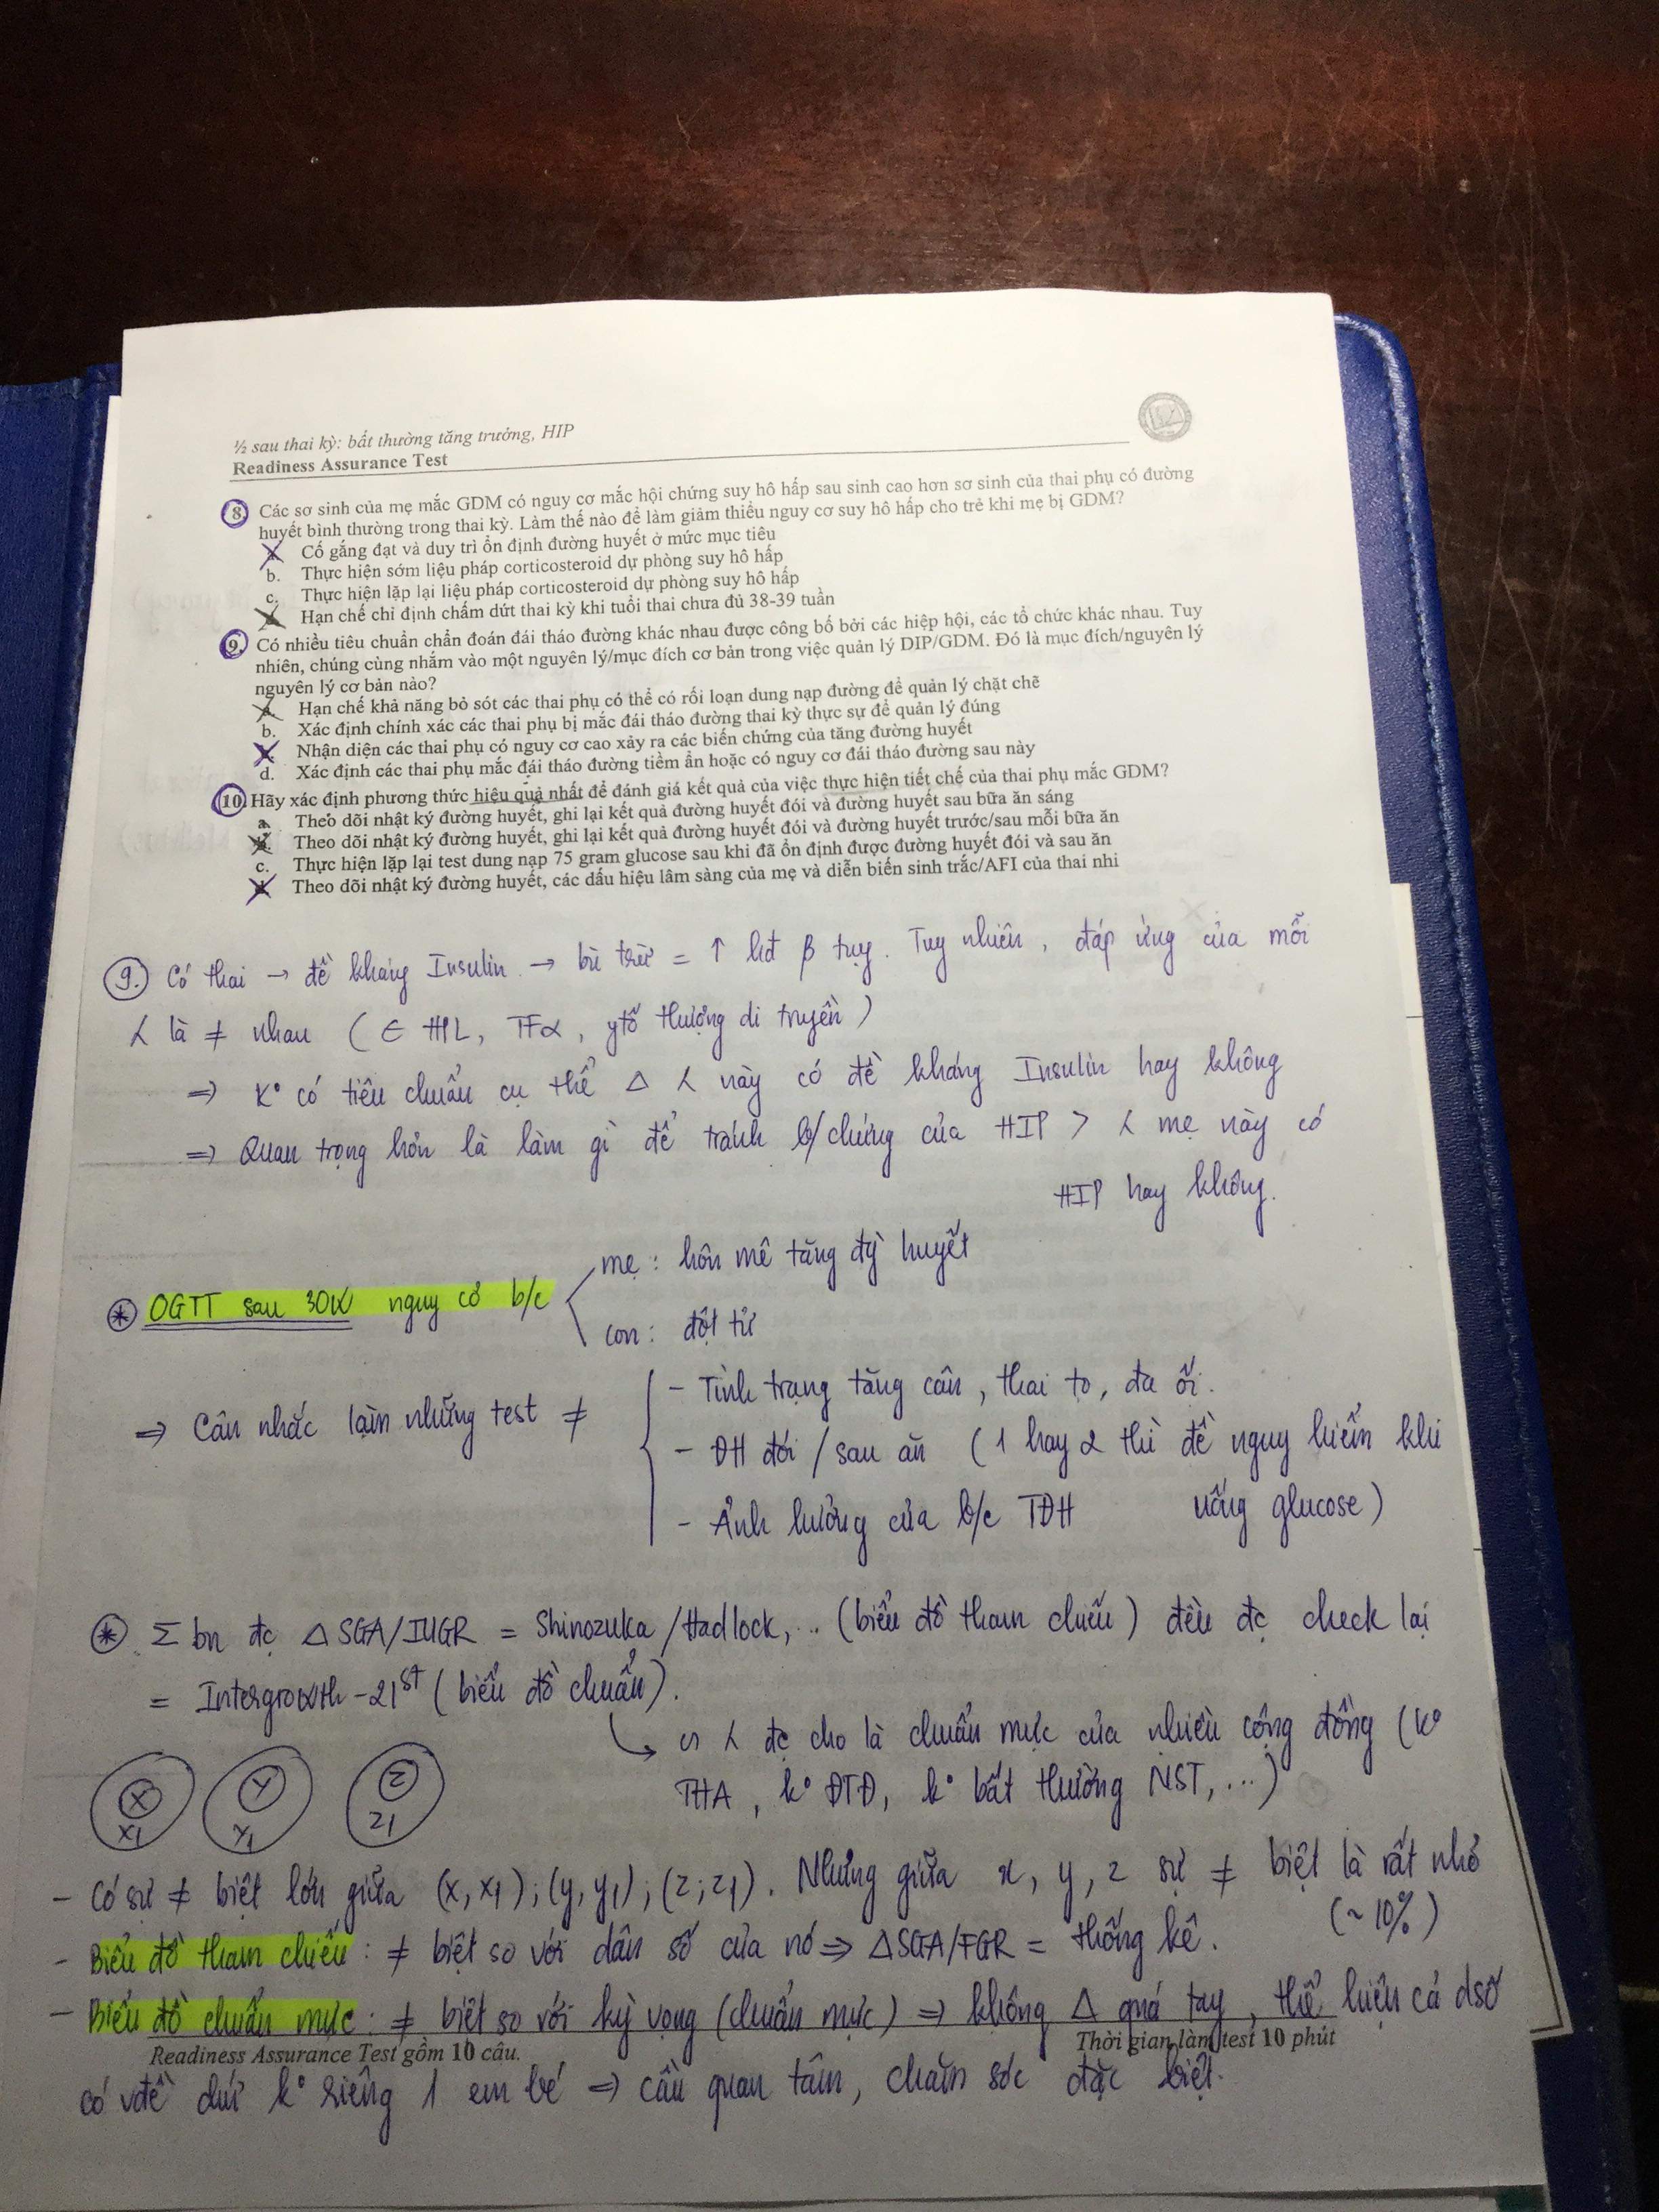 ½ sau thai kỳ: bất thường tăng trưởng, HIP
Readiness Assurance Test
8. Các sơ sinh của mẹ mắc GDM có nguy cơ mắc hội chứng suy hô hấp sau sinh cao hơn sơ sinh của thai phụ có đường
huyết bình thường trong thai kỳ. Làm thế nào để làm giảm thiểu nguy cơ suy hô hấp cho trẻ khi mẹ bị GDM?
a. Cố gắng đạt và duy trì ổn định đường huyết ở mức mục tiêu
b. Thực hiện sớm liệu pháp corticosteroid dự phòng suy hô hấp
c. Thực hiện lặp lại liệu pháp corticosteroid dự phòng suy hô hấp
d. Hạn chế chỉ định chấm dứt thai kỳ khi tuổi thai chưa đủ 38-39 tuần
9. Có nhiều tiêu chuẩn chẩn đoán đái tháo đường khác nhau được công bố bởi các hiệp hội, các tổ chức khác nhau. Tuy
nhiên, chúng cùng nhắm vào một nguyên lý/mục đích cơ bản trong việc quản lý DIP/GDM. Đó là mục đích/nguyên lý
nguyên lý cơ bản nào?
a. Hạn chế khả năng bỏ sót các thai phụ có thể có rối loạn dung nạp đường để quản lý chặt chẽ
b. Xác định chính xác các thai phụ bị mắc đái tháo đường thai kỳ thực sự để quản lý đúng
c. Nhận diện các thai phụ có nguy cơ cao xảy ra các biến chứng của tăng đường huyết
d. Xác định các thai phụ mắc đái tháo đường tiềm ẩn hoặc có nguy cơ đái tháo đường sau này
10. Hãy xác định phương thức hiệu quả nhất để đánh giá kết quả của việc thực hiện tiết chế của thai phụ mắc GDM?
a. Theo dõi nhật ký đường huyết, ghi lại kết quả đường huyết đói và đường huyết sau bữa ăn sáng
b. Theo dõi nhật ký đường huyết, ghi lại kết quả đường huyết đói và đường huyết trước/sau mỗi bữa ăn
c. Thực hiện lặp lại test dung nạp 75 gram glucose sau khi đã ổn định được đường huyết đói và sau ăn
d. Theo dõi nhật ký đường huyết, các dấu hiệu lâm sàng của mẹ và diễn biến sinh trắc/AFI của thai nhi
9. Có thai → đề kháng Insulin → bù trừ = ↑ hđ β tụy. Tuy nhiên, đáp ứng của mỗi
⅄ là ≠ nhau (∈ HPL, TFα, ytố thượng di truyền)
⇒ K° có tiêu chuẩn cụ thể Δ ⅄ này có đề kháng Insulin hay không
⇒ Quan trọng hơn là làm gì để tránh b/chứng của HIP > ⅄ mẹ này có
HIP hay không.
* OGTT sau 30W nguy cơ b/c
mẹ: hôn mê tăng đg huyết
con: đột tử
⇒ Cân nhắc làm những test ≠
- Tình trạng tăng cân, thai to, đa ối.
- ĐH đói / sau ăn (1 hay 2 thì đề nguy hiểm khi
uống glucose)
- Ảnh hưởng của b/c TĐH
* Σ bn đc Δ SGA/IUGR = Shinozuka/Hadlock,.. (biểu đồ tham chiếu) đều đc check lại
= Intergrowth-21st (biểu đồ chuẩn).
↳ ⅄ đc cho là chuẩn mực của nhiều cộng đồng (k°
THA, k° ĐTĐ, k° bất thường NST, ...)
X Y Z
X1 Y1 Z1
- Có sự ≠ biệt lớn giữa (x, x1); (y, y1); (z; z1). Nhưng giữa x, y, z sự ≠ biệt là rất nhỏ
(~ 10%)
- Biểu đồ tham chiếu: ≠ biệt so với dân số của nó ⇒ Δ SGA/FGR = thống kê.
- Biểu đồ chuẩn mực: ≠ biệt so với kỳ vọng (chuẩn mực) ⇒ không Δ quá tay, thể hiện cả dsố
Readiness Assurance Test gồm 10 câu. Thời gian làm test 10 phút
có vđề chứ k° riêng 1 em bé ⇒ cần quan tâm, chăm sóc đặc biệt.